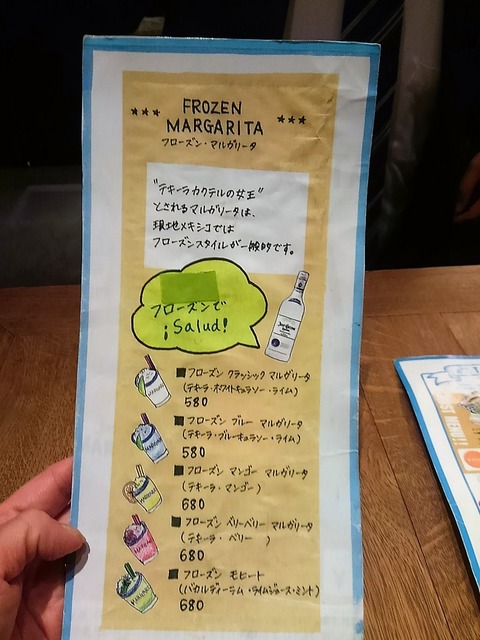 FROZEN
MARGARITA
フローズン・マルガリータ
"テキーラカクテルの女王"
とされるマルガリータは、
現地メキシコでは
フローズンスタイルが一般的です。
フローズンで
¡Salud!
■フローズン クラッシック マルガリータ
(テキーラ・ホワイトキュラソー・ライム)
580
■フローズン ブルー マルガリータ
(テキーラ・ブルーキュラソー・ライム)
580
■フローズン マンゴー マルガリータ
(テキーラ・マンゴー)
680
■フローズン ベリーベリー マルガリータ
(テキーラ・ベリー )
680
■フローズン モヒート
(バカルディラム・ライムジュース・ミント)
680